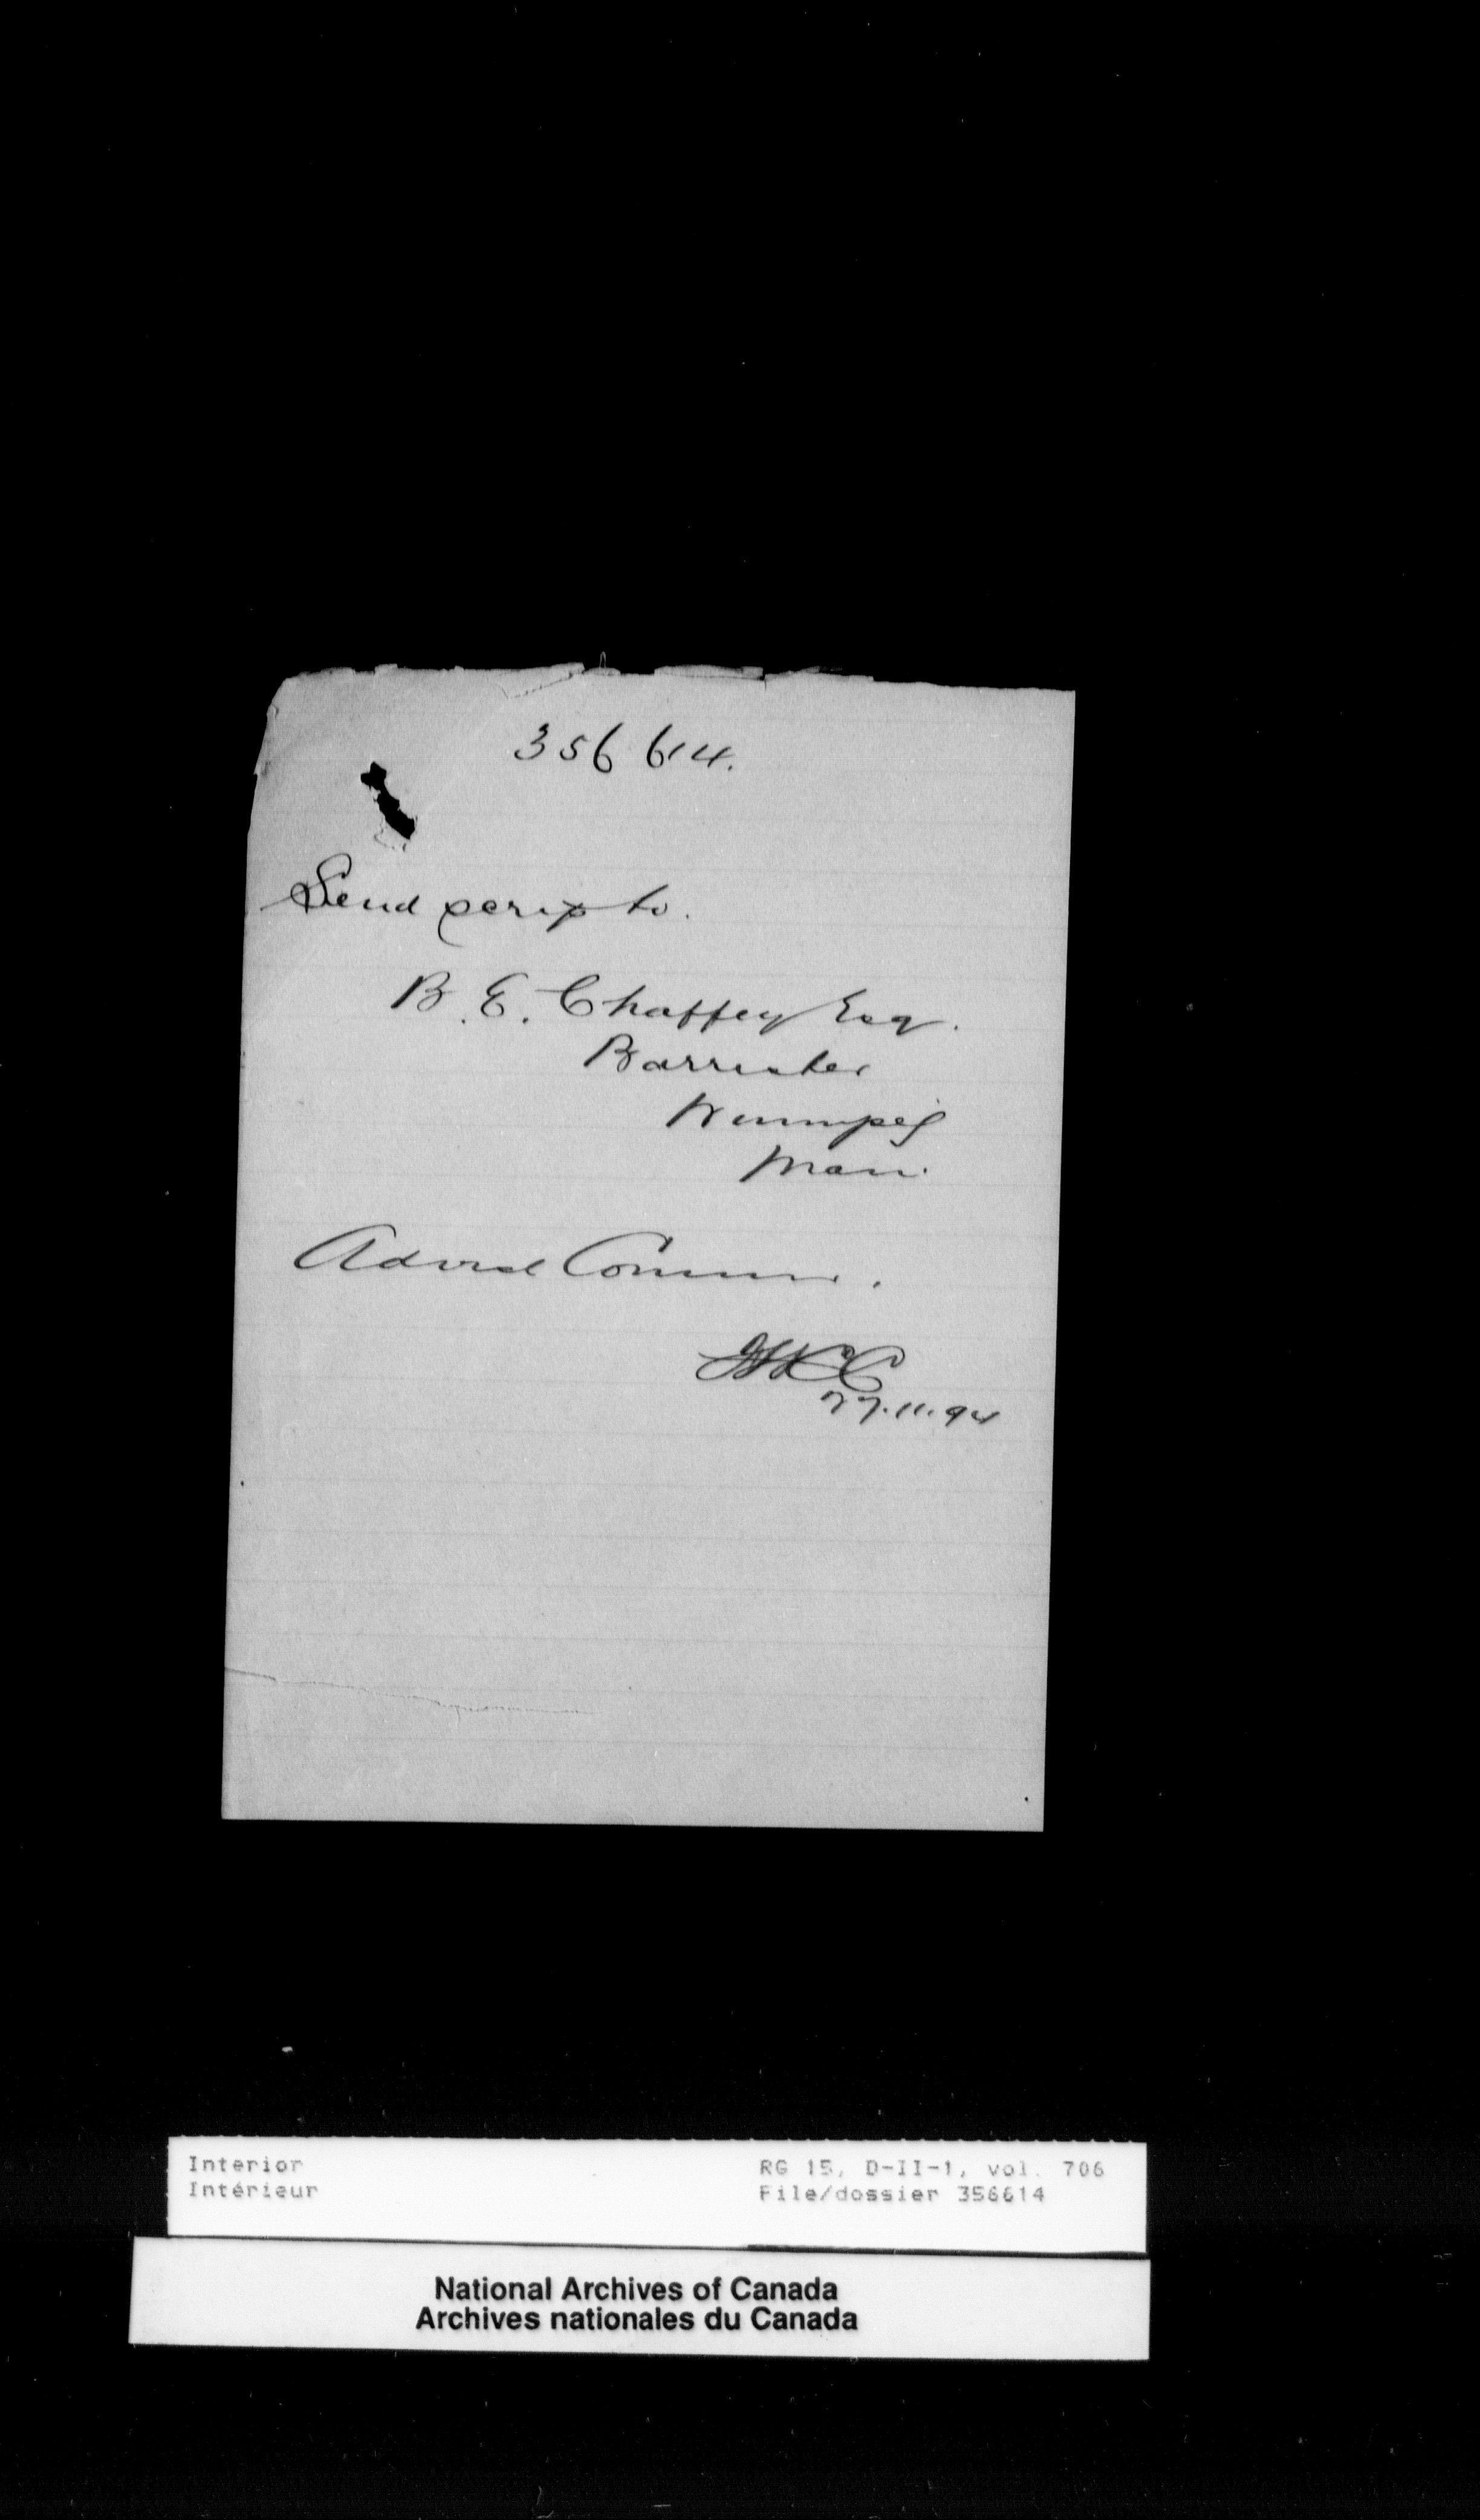 356614.
Send scrip to.
B. E. Chaffey Esq.
Barrister
Winnipeg
Man.
Advise Commr.
27.11.94
Interior
Intérieur
RG 15, D-II-1, vol. 706
File/dossier 356614
National Archives of Canada
Archives nationales du Canada